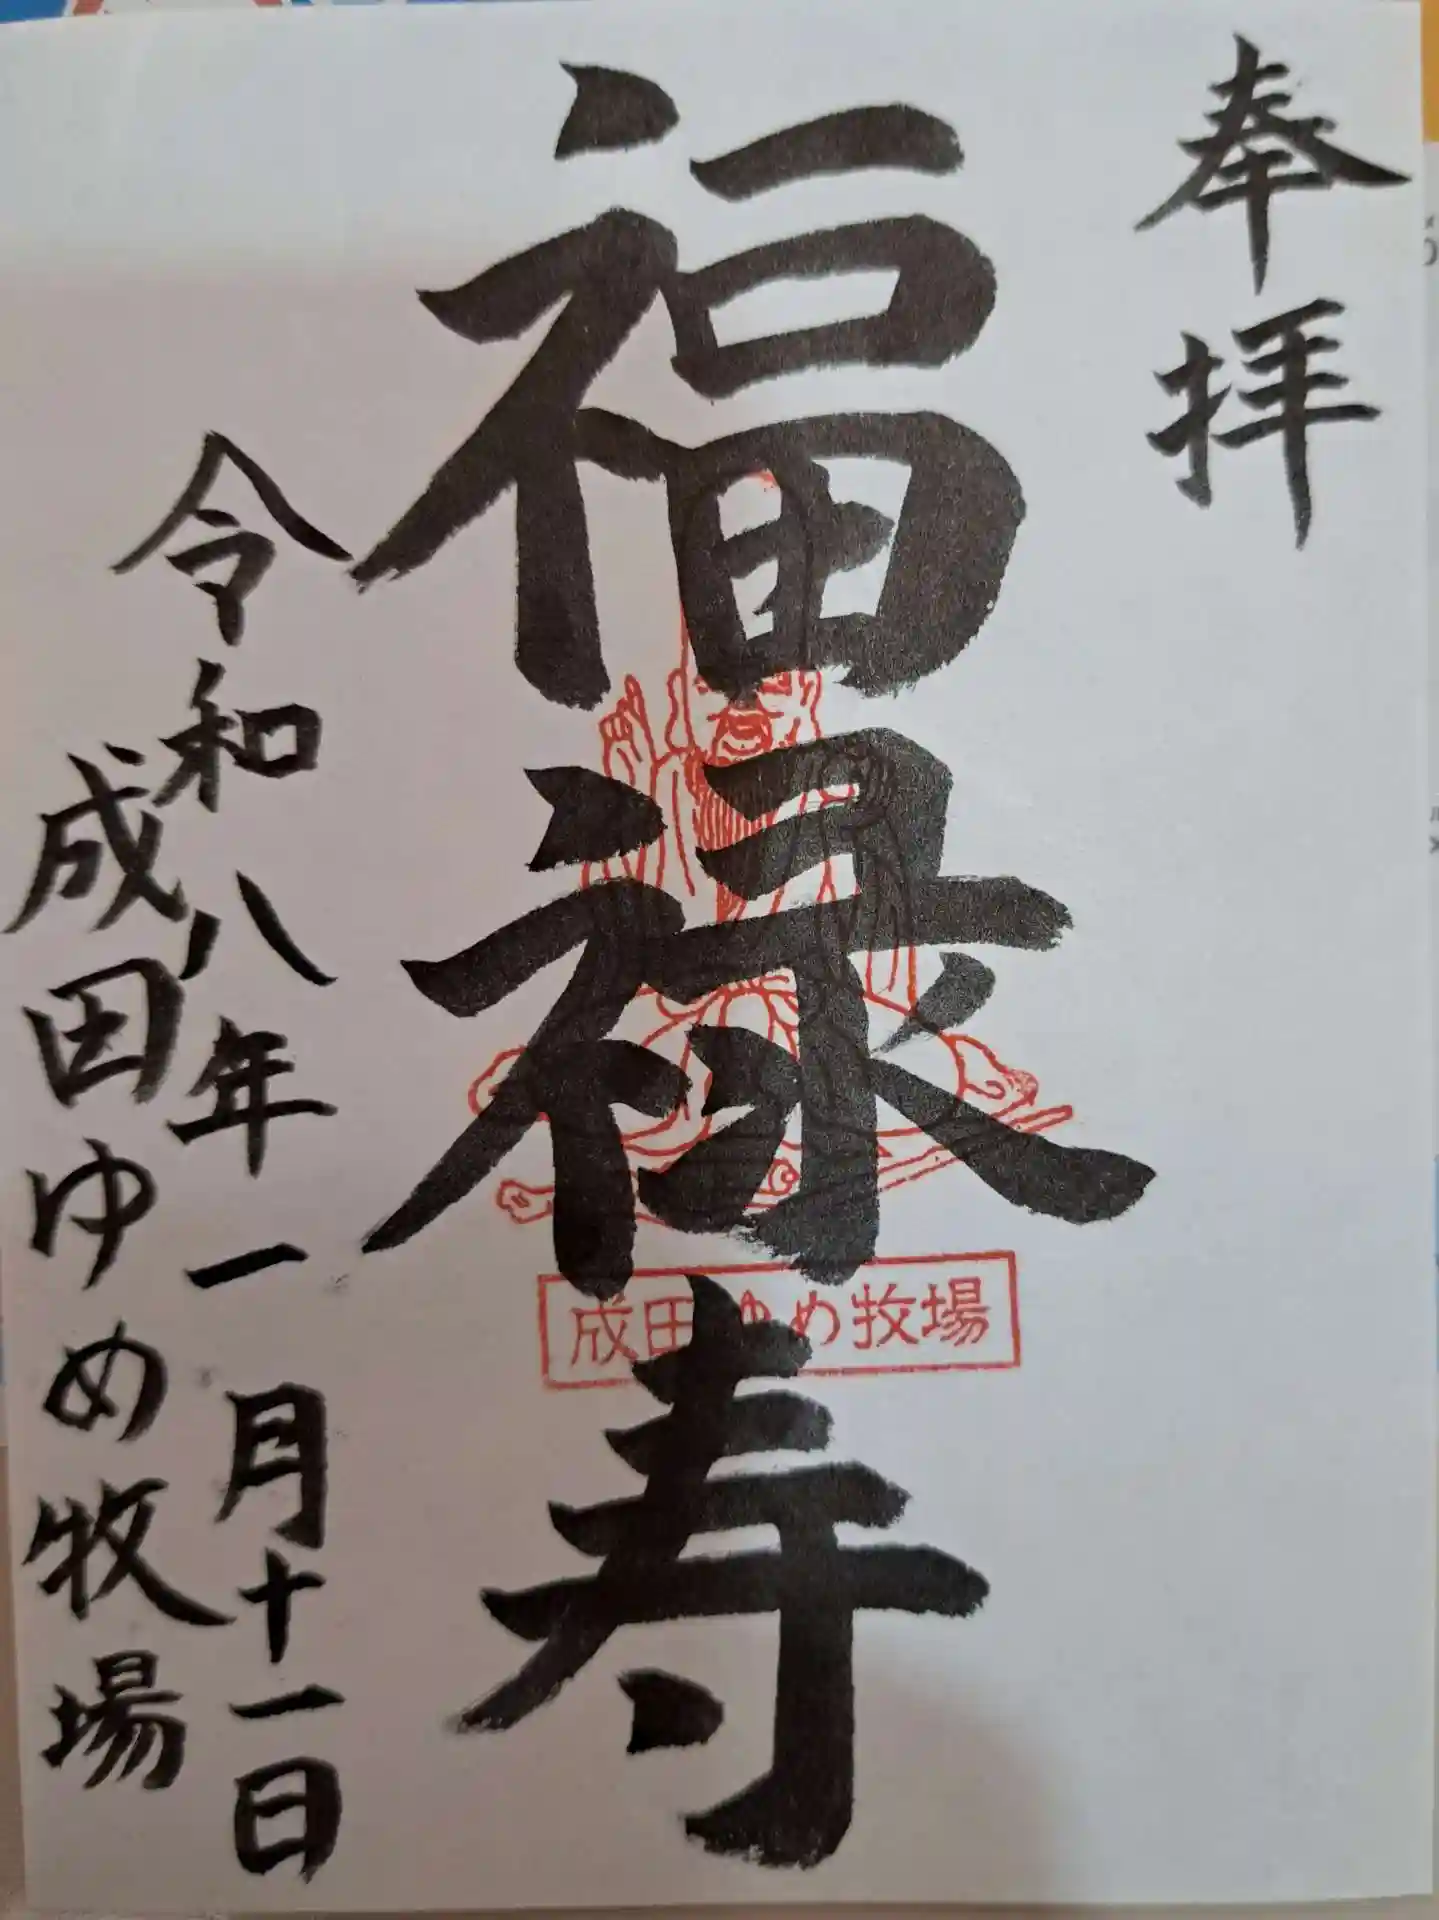 奉拝
福禄寿
成田ゆめ牧場
令和八年一月十一日
成田ゆめ牧場